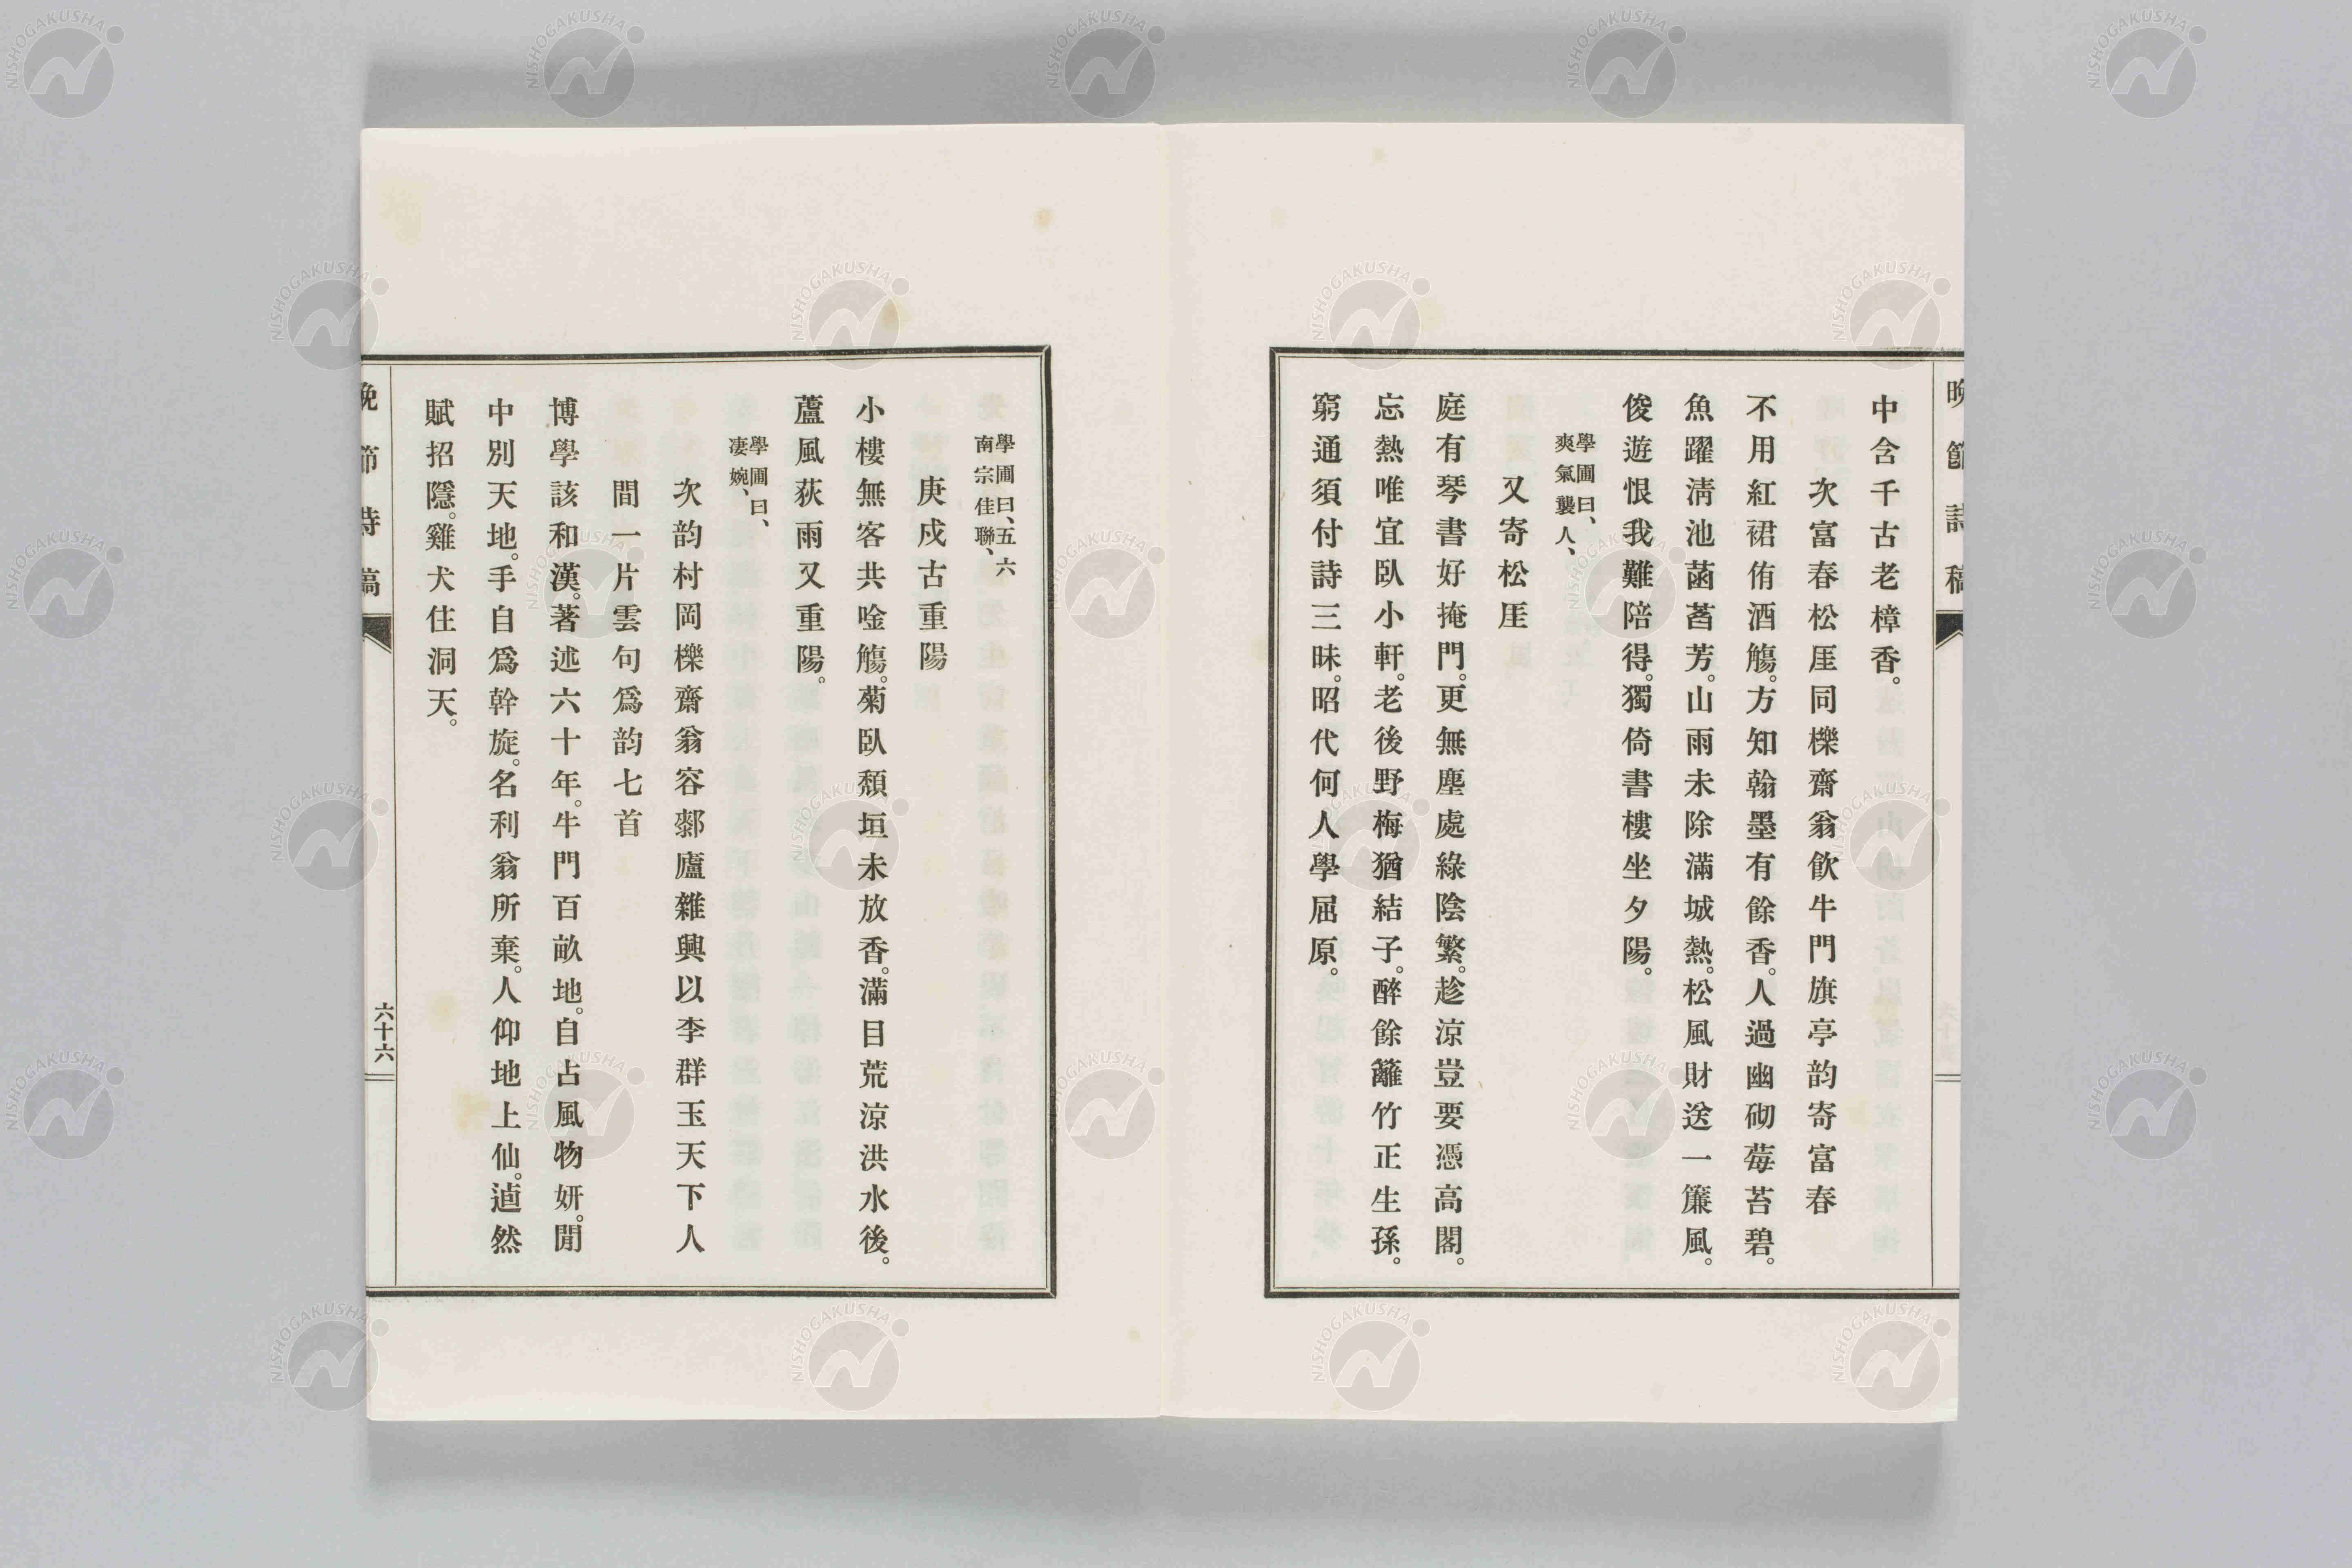 晩節詩稿
中含千古老樟香。
次富春松厓同櫟齋翁飮牛門旗亭韵寄富春
不用紅裙侑酒觴。方知翰墨有餘香。人過幽砌莓苔碧。
魚躍淸池菡萏芳。山雨未除滿城熱。松風財送一簾風。
俊遊恨我難陪得。獨倚書樓坐夕陽。
學圃曰、
爽氣襲人、
又寄松厓
庭有琴書好掩門。更無塵處綠陰繁。趁涼豈要憑高閣。
忘熱唯宜臥小軒。老後野梅猶結子。醉餘籬竹正生孫。
窮通須付詩三昧。昭代何人學屈原。
學圃曰、五六
南宗佳聯、
庚戍古重陽
小樓無客共唫觴。菊臥頽垣未放香。滿目荒涼洪水後。
蘆風荻雨又重陽。
學圃曰、
凄婉、
次韵村岡櫟齋翁容鄰廬雜興以李群玉天下人
間一片雲句爲韵七首
博學該和漢。著述六十年。牛門百畝地。自占風物姸。閒
中別天地。手自爲幹旋。名利翁所棄。人仰地上仙。逌然
賦招隱。雞犬住洞天。
晩節詩稿
六十六
NISHOGAKUSHA